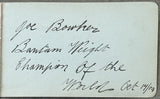 Joe Bowker
Bantam Weight
Champion of the
World Oct